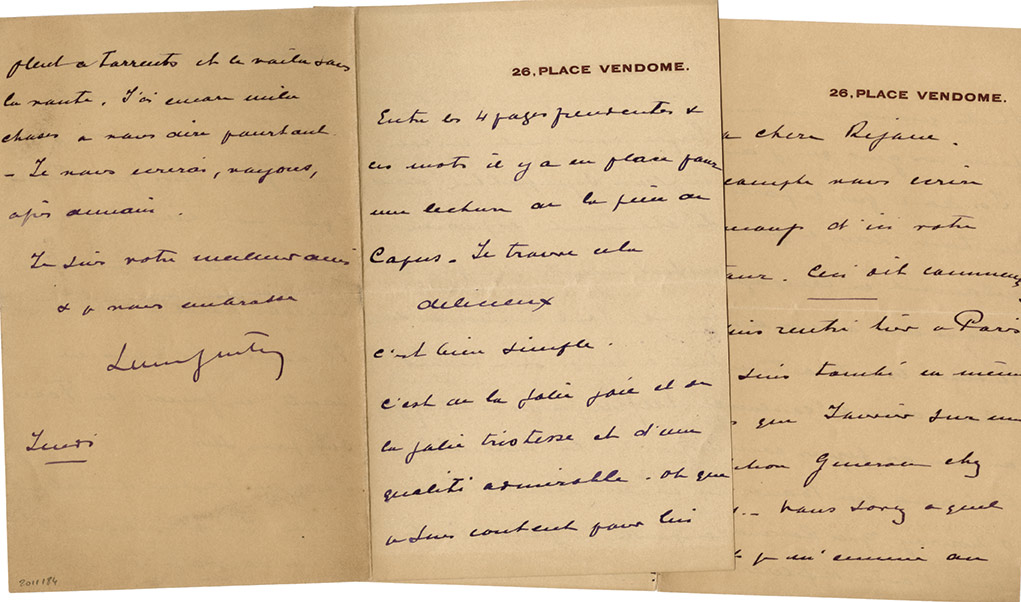 pleut à torrents et la voilà sans
la route. J'ai encore mille
choses à vous dire pourtant.
- Je vous écrirai, voyons,
après demain.
Je suis votre meilleur ami
& je vous embrasse
Jeudi
2011184
26, PLACE VENDOME.
Entre les 4 pages précédentes &
ces mots il y a eu place pour
une lecture de la pièce de
Capus - Je trouve cela
délicieux
c'est bien simple.
c'est de la jolie joie et de
la jolie tristesse et d'une
qualité admirable. oh que
je suis content pour lui
26, PLACE VENDOME.
chère Réjane.
compte vous écrire
d'ici votre
Ceci dit commenç
rentré hier à Paris
suis tombé en même
que Janvier sur une
chez
Vous savez à quel
je m'ennuie au